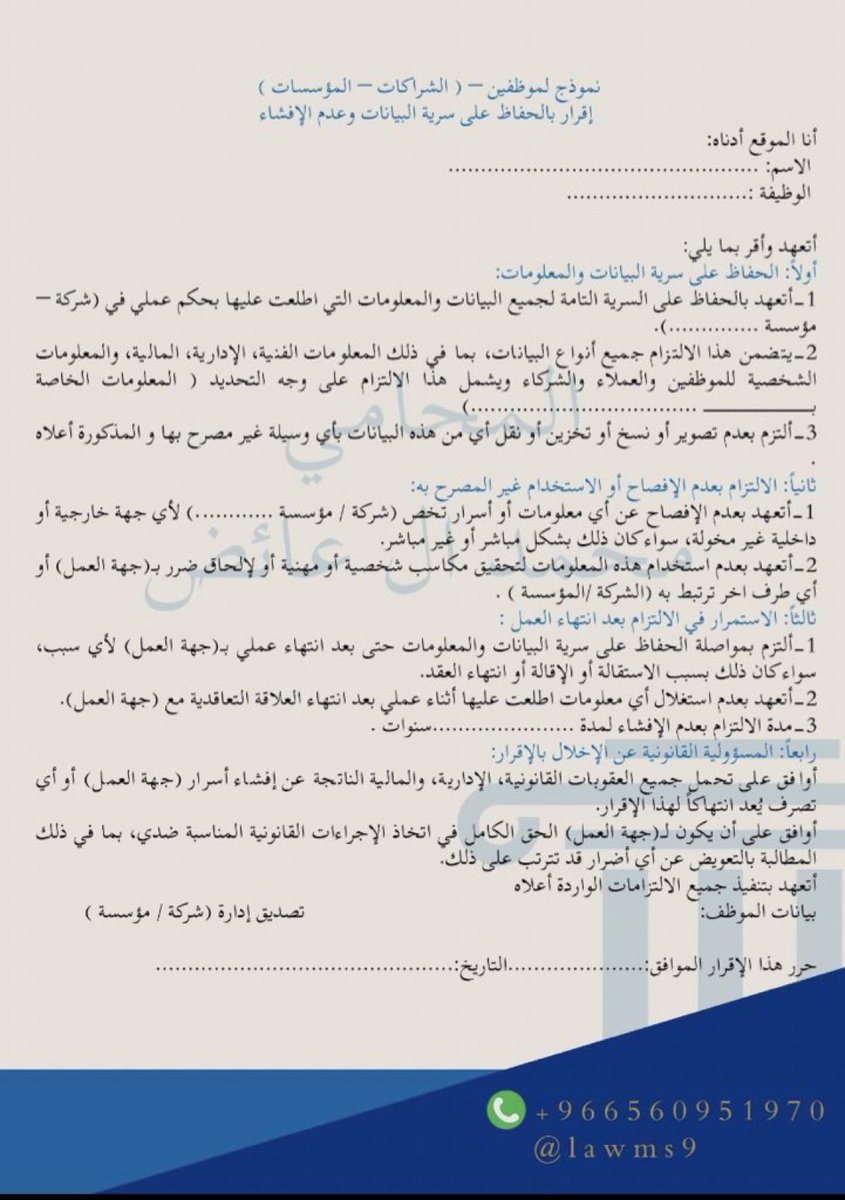 نموذج لموظفين – ( الشراكات – المؤسسات )
إقرار بالحفاظ على سرية البيانات وعدم الإفشاء
أنا الموقع أدناه:
الاسم: ................................................
الوظيفة :............................
أتعهد وأقر بما يلي:
أولاً: الحفاظ على سرية البيانات والمعلومات:
1-أتعهد بالحفاظ على السرية التامة لجميع البيانات والمعلومات التي اطلعت عليها بحكم عملي في (شركة –
مؤسسة ..............).
2-يتضمن هذا الالتزام جميع أنواع البيانات، بما في ذلك المعلومات الفنية، الإدارية، المالية، والمعلومات
الشخصية للموظفين والعملاء والشركاء ويشمل هذا الالتزام على وجه التحديد ( المعلومات الخاصة
بـــــــــــــــــ ...................................)
3-ألتزم بعدم تصوير أو نسخ أو تخزين أو نقل أي من هذه البيانات بأي وسيلة غير مصرح بها و المذكورة أعلاه
.
المحامي
ثانياً: الالتزام بعدم الإفصاح أو الاستخدام غير المصرح به:
1-أتعهد بعدم الإفصاح عن أي معلومات أو أسرار تخص (شركة / مؤسسة ............) لأي جهة خارجية أو
داخلية غير مخولة، سواء كان ذلك بشكل مباشر أو غير مباشر.
محمد ال عائض
2-أتعهد بعدم استخدام هذه المعلومات لتحقيق مكاسب شخصية أو مهنية أو لإلحاق ضرر بـ(جهة العمل) أو
أي طرف اخر ترتبط به (الشركة /المؤسسة ) .
ثالثاً: الاستمرار في الالتزام بعد انتهاء العمل :
1-ألتزم بمواصلة الحفاظ على سرية البيانات والمعلومات حتى بعد انتهاء عملي بـ(جهة العمل) لأي سبب،
سواء كان ذلك بسبب الاستقالة أو الإقالة أو انتهاء العقد.
2-أتعهد بعدم استغلال أي معلومات اطلعت عليها أثناء عملي بعد انتهاء العلاقة التعاقدية مع (جهة العمل).
3-مدة الالتزام بعدم الإفشاء لمدة ......................سنوات .
رابعاً: المسؤولية القانونية عن الإخلال بالإقرار:
أوافق على تحمل جميع العقوبات القانونية، الإدارية، والمالية الناتجة عن إفشاء أسرار (جهة العمل) أو أي
تصرف يُعد انتهاكاً لهذا الإقرار.
أوافق على أن يكون لـ(جهة العمل) الحق الكامل في اتخاذ الإجراءات القانونية المناسبة ضدي، بما في ذلك
المطالبة بالتعويض عن أي أضرار قد تترتب على ذلك.
أتعهد بتنفيذ جميع الالتزامات الواردة أعلاه
بيانات الموظف: تصديق إدارة (شركة / مؤسسة )
حرر هذا الإقرار الموافق:.....................التاريخ:..............................................
+966560951970
@lawms9